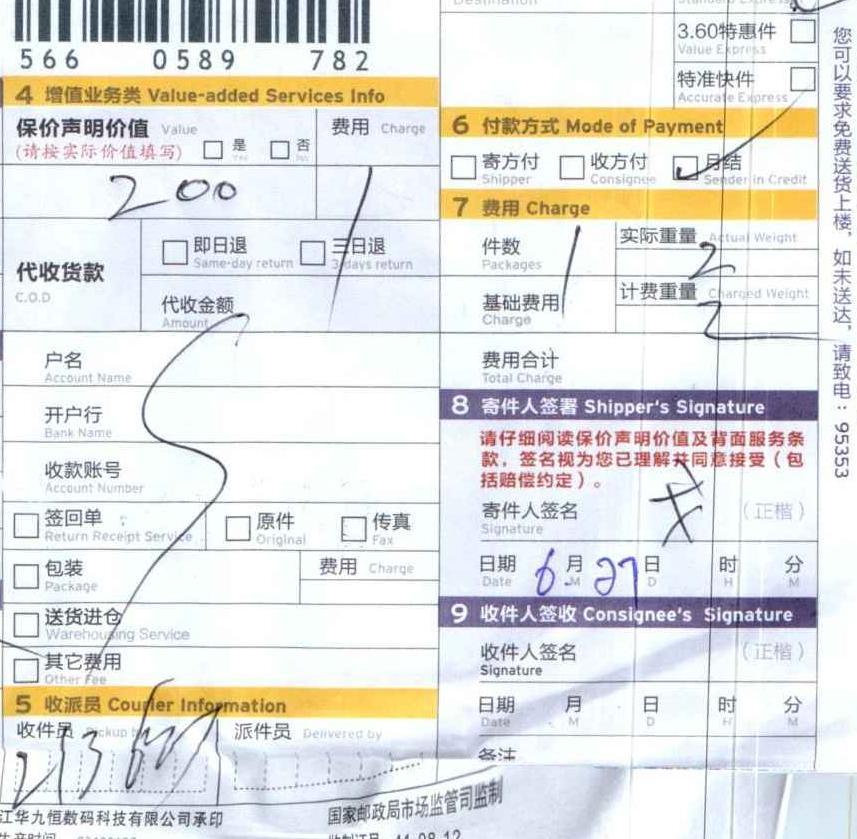 566 0589 782
3.60特惠件
Value Express
特准快件
Accurate Express
4 增值业务类 Value-added Services Info
保价声明价值 Value
(请按实际价值填写) 是 否
费用 Charge
200
代收货款
C.O.D
即日退
Same-day return
三日退
3 days return
代收金额
Amount
户名
Account Name
开户行
Bank Name
收款账号
Account Number
签回单
Return Receipt Service
原件
Original
传真
Fax
包装
Package
费用 Charge
送货进仓
Warehousing Service
其它费用
Other Fee
5 收派员 Courier Information
收件员 Pickup by
派件员 Delivered by
6 付款方式 Mode of Payment
寄方付
Shipper
收方付
Consignee
月结
Sender in Credit
7 费用 Charge
件数
Packages
1
实际重量 Actual Weight
2
基础费用
Charge
计费重量 Charged Weight
2
费用合计
Total Charge
8 寄件人签署 Shipper's Signature
请仔细阅读保价声明价值及背面服务条
款，签名视为您已理解并同意接受（包
括赔偿约定）。
寄件人签名 （正楷）
Signature
日期 6 月 27 日 时 分
Date M D H M
9 收件人签收 Consignee's Signature
收件人签名 （正楷）
Signature
日期 月 日 时 分
Date M D H M
备注
您可以要求免费送货上楼，如未送达，请致电：95353
江华九恒数码科技有限公司承印
国家邮政局市场监管司监制